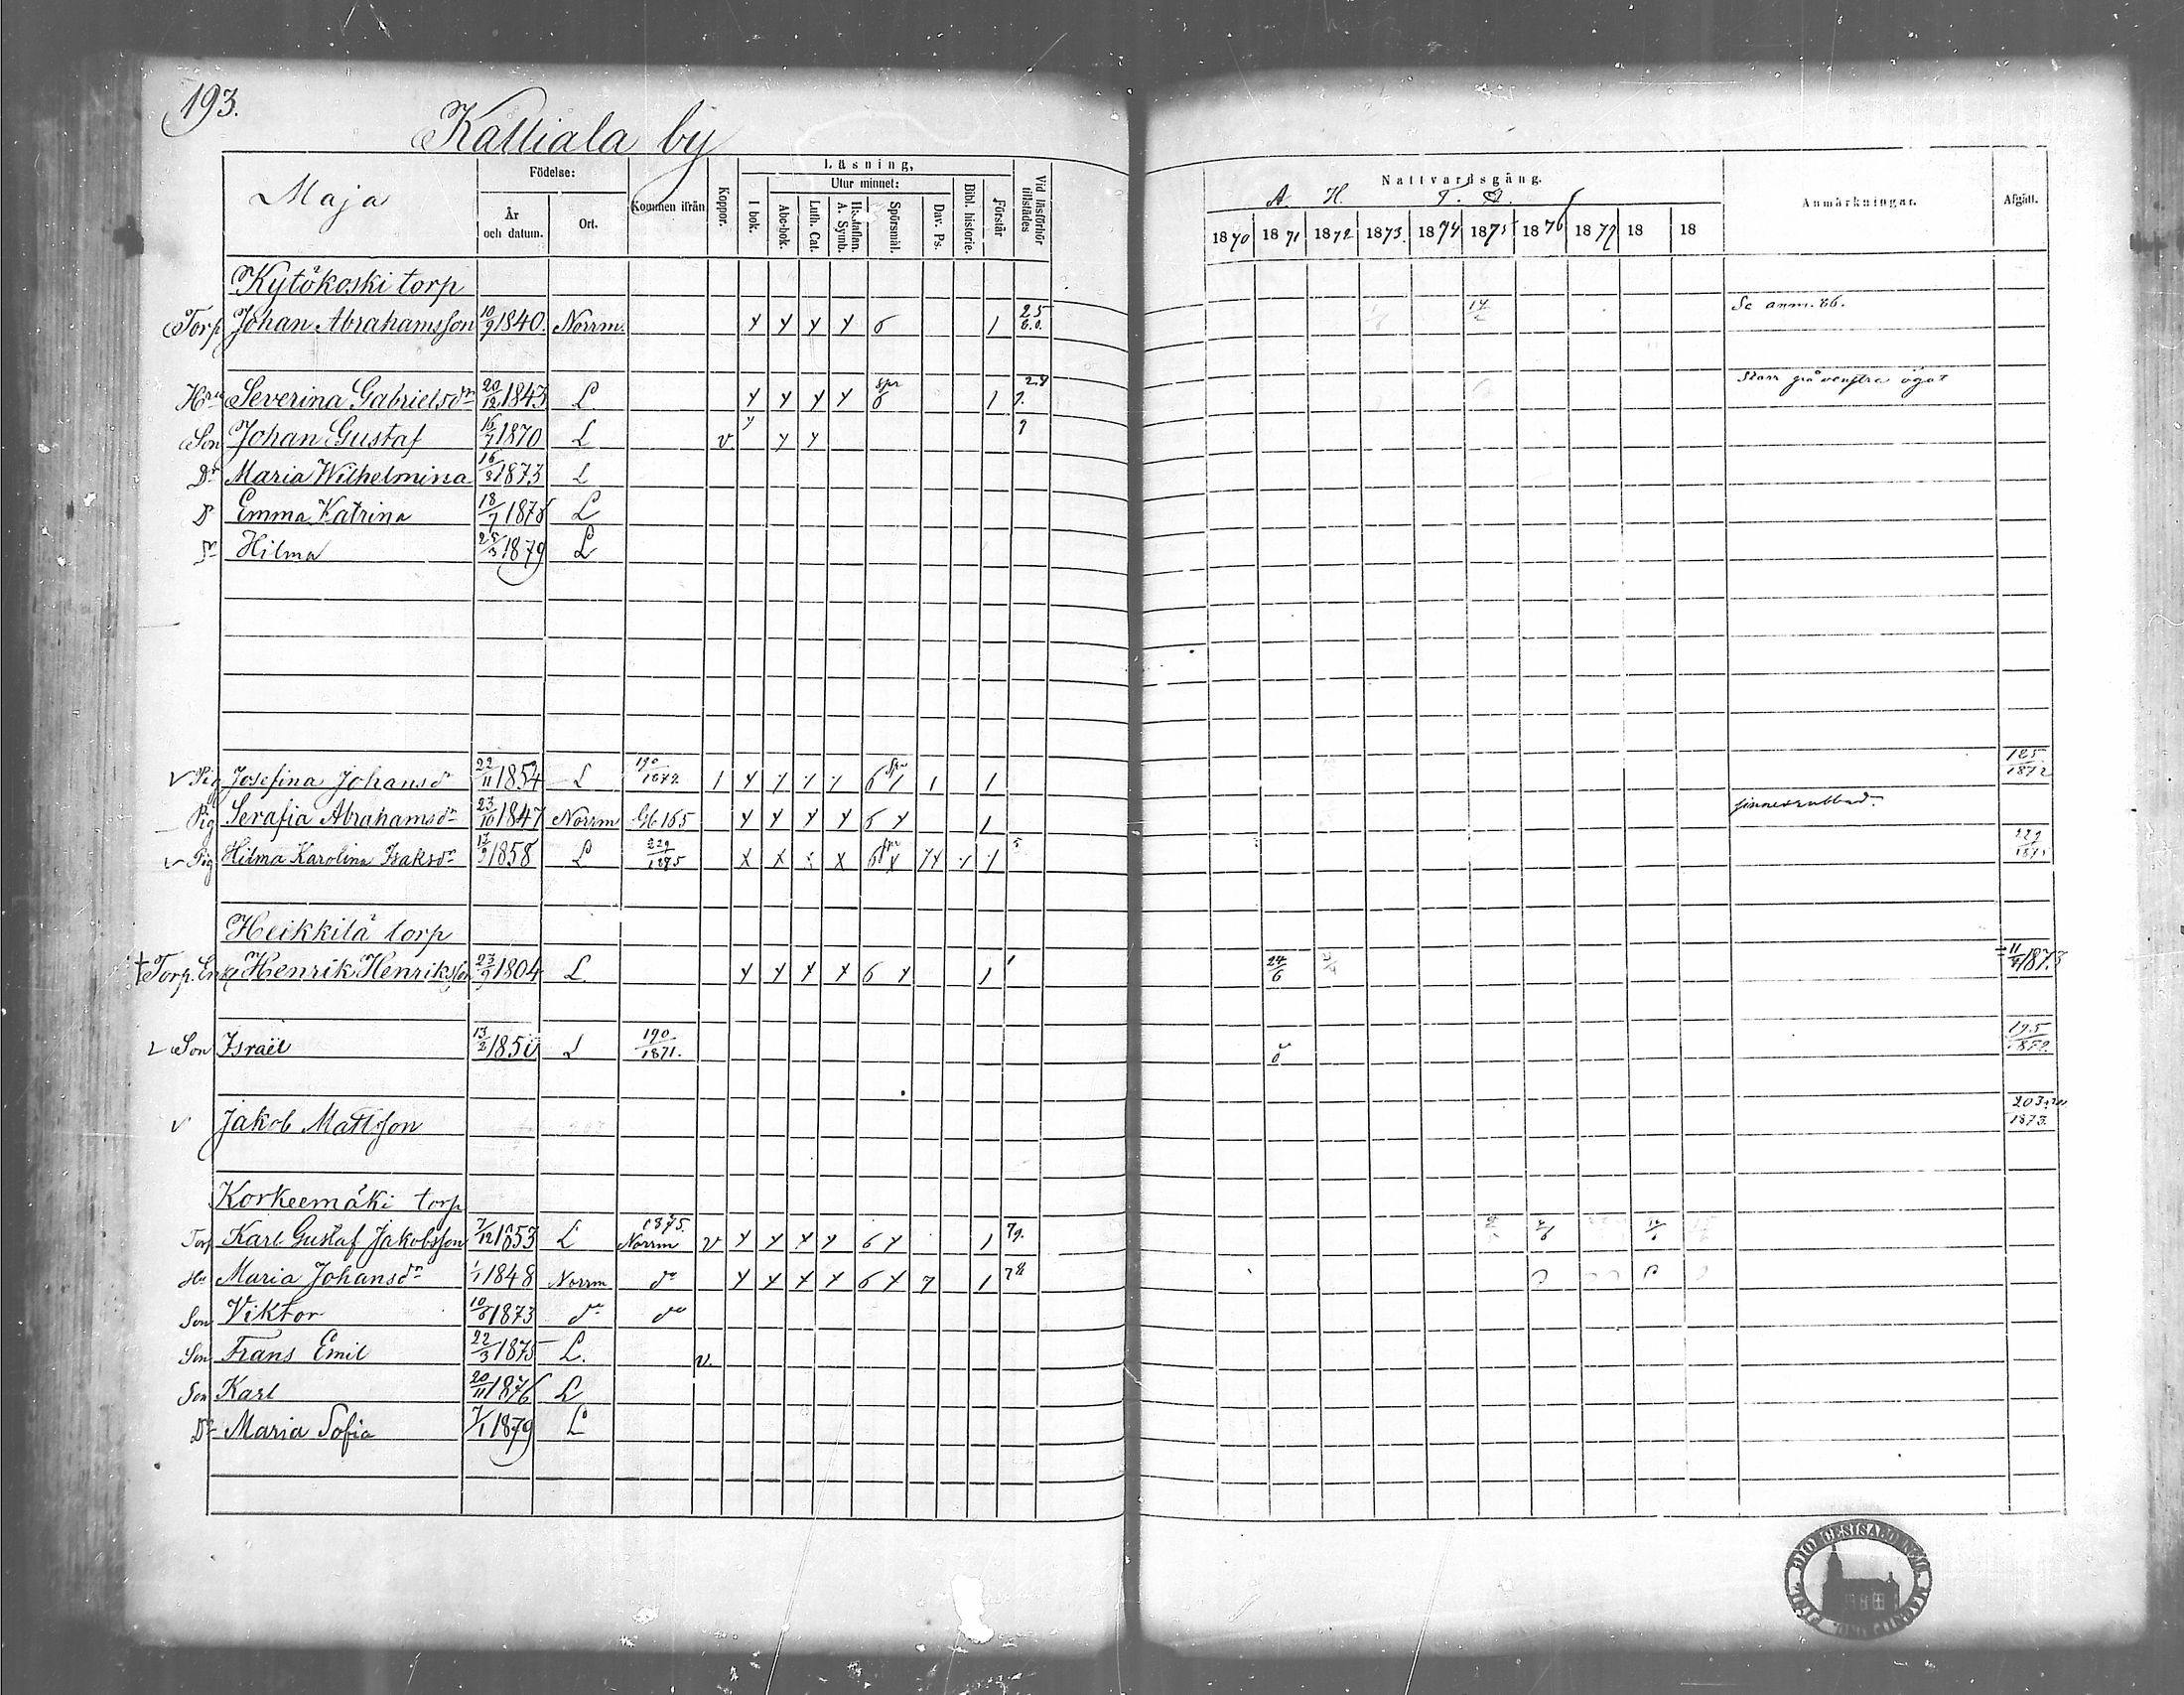 193.
Kalliala by
Maja
Födelse:
År och datum.
Ort.
Kommen ifrån
Koppor.
Läsning,
I bok.
Utur minnet:
Abc-bok.
Luth. Cat.
Hustaflan. A. Symb.
Spörsmål.
Dav. Ps.
Bibl. historie.
Förstår
Vid läsförhör tillstädes
Nattvardsgång.
A. H. T. D.
1870 1871 1872 1873. 1874 1875 1876 1877 18 18
Anmärkningar.
Afgått.
Kytökoski torp
Torp Johan Abrahamsson 10/9 1840. Norrm. y y y y 6 1 25 17 Se anm. 86.
Hru Severina Gabrielsdr 20/12 1843 L y y y y spr 6 1 Starr på venstra ögat
Son Johan Gustaf 15/7 1870 L v. y y y
Dr Maria Wilhelmina 16/8 1873 L
D Emma Katrina 18/7 1876 L
Dr Hilma 25/3 1879 L
v Pig Josefina Johansdr 22/11 1854 L 190/1872 1 y y y y 6 spr 1 1 185/1872
Pig Serafia Abrahamsdr 23/10 1847 Norrm Gb 165 y y y y 6 y 1
v Pig Hilma Karolina Isaksdr 17/9 1858 L 229/1875 x x x x 6 spr x 7x 229/1875
Heikkilä torp
† Torp. Enkl Henrik Henriksson 23/9 1804 L. y y y y 6 y 1 24/6 1873
Son Israël 13/2 185 L 190/1871. 195
v Jakob Mattsson 203 1873.
Korkeemäki torp
Torp Karl Gustaf Jakobsson 7/12 1853 L 1875. Norrm v y y y y 6 y 1 79.
Hu Maria Johansdr 1/1 1848 Norrm do y y y y 6 y 7 1 78
Son Viktor 10/6 1873 do do
Son Frans Emil 22/3 1875 L. v.
Son Karl 20/11 1876 L
Dr Maria Sofia 7/1 1879 L